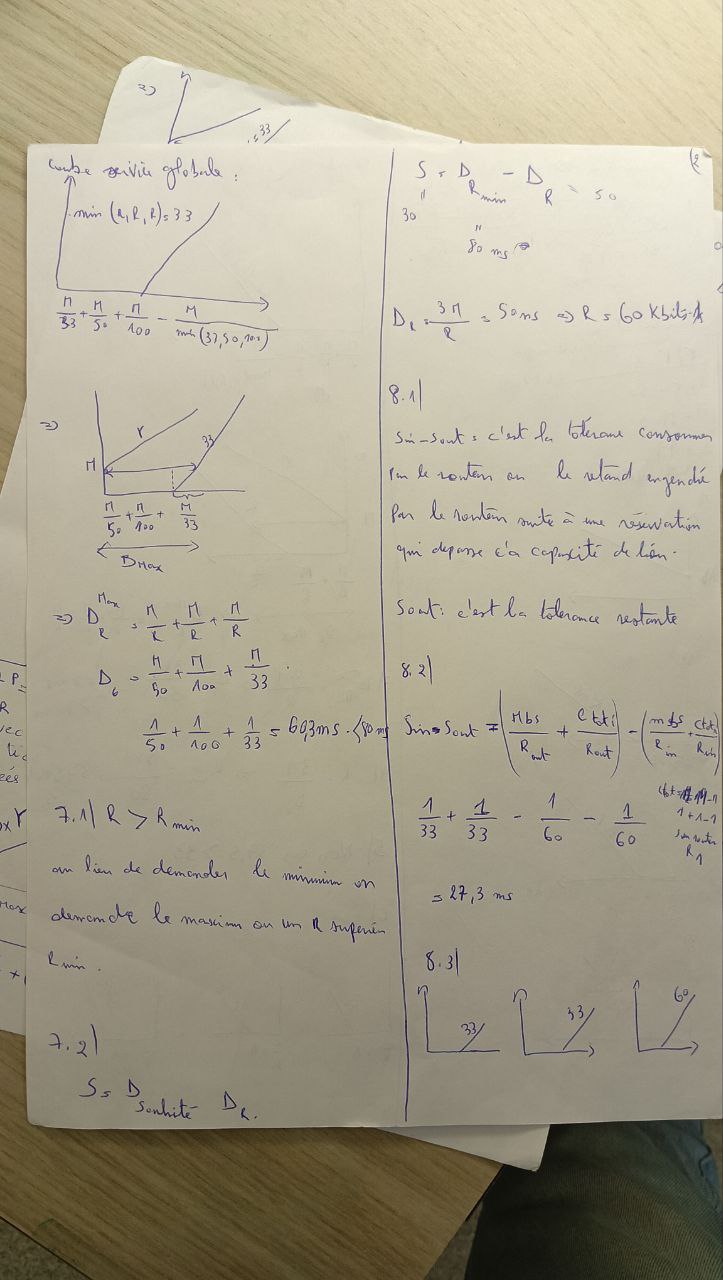 courbe service globale :
min (R,R,R)=33
M/33 + M/50 + M/100 - M/min(33,50,100)
=>
r
33
M
M/50 + M/100 + M/33
DMax
=> D_R^Max = M/R + M/R + M/R
D_6 = M/50 + M/100 + M/33 .
1/50 + 1/100 + 1/33 = 60,3ms < 80 ms
7.1| R > R_min
au lieu de demander le minimum on
demande le maximum ou un R supérieur
R_min .
7.2|
S = D_souhité - D_R .
(2
S = D_Rmin - D_R = 50
30 "
" 80 ms
D_R = 3M/R = 50ms => R = 60 Kbits
8.1|
Sin-Sout : c'est la tolérance consommer
par le routeur ou le retard engendré
par le routeur suite à une réservation
qui dépasse ça capacité de lien.
Sout : c'est la tolérance restante
8.2|
Sin-Sout = (Mbs/Rout + Ctoti/Rout) - (mbs/Rin + Ctoti/Rin)
1/33 + 1/33 - 1/60 - 1/60
1+1-1
R1
= 27,3 ms
8.3|
33
33
60
=>
=33